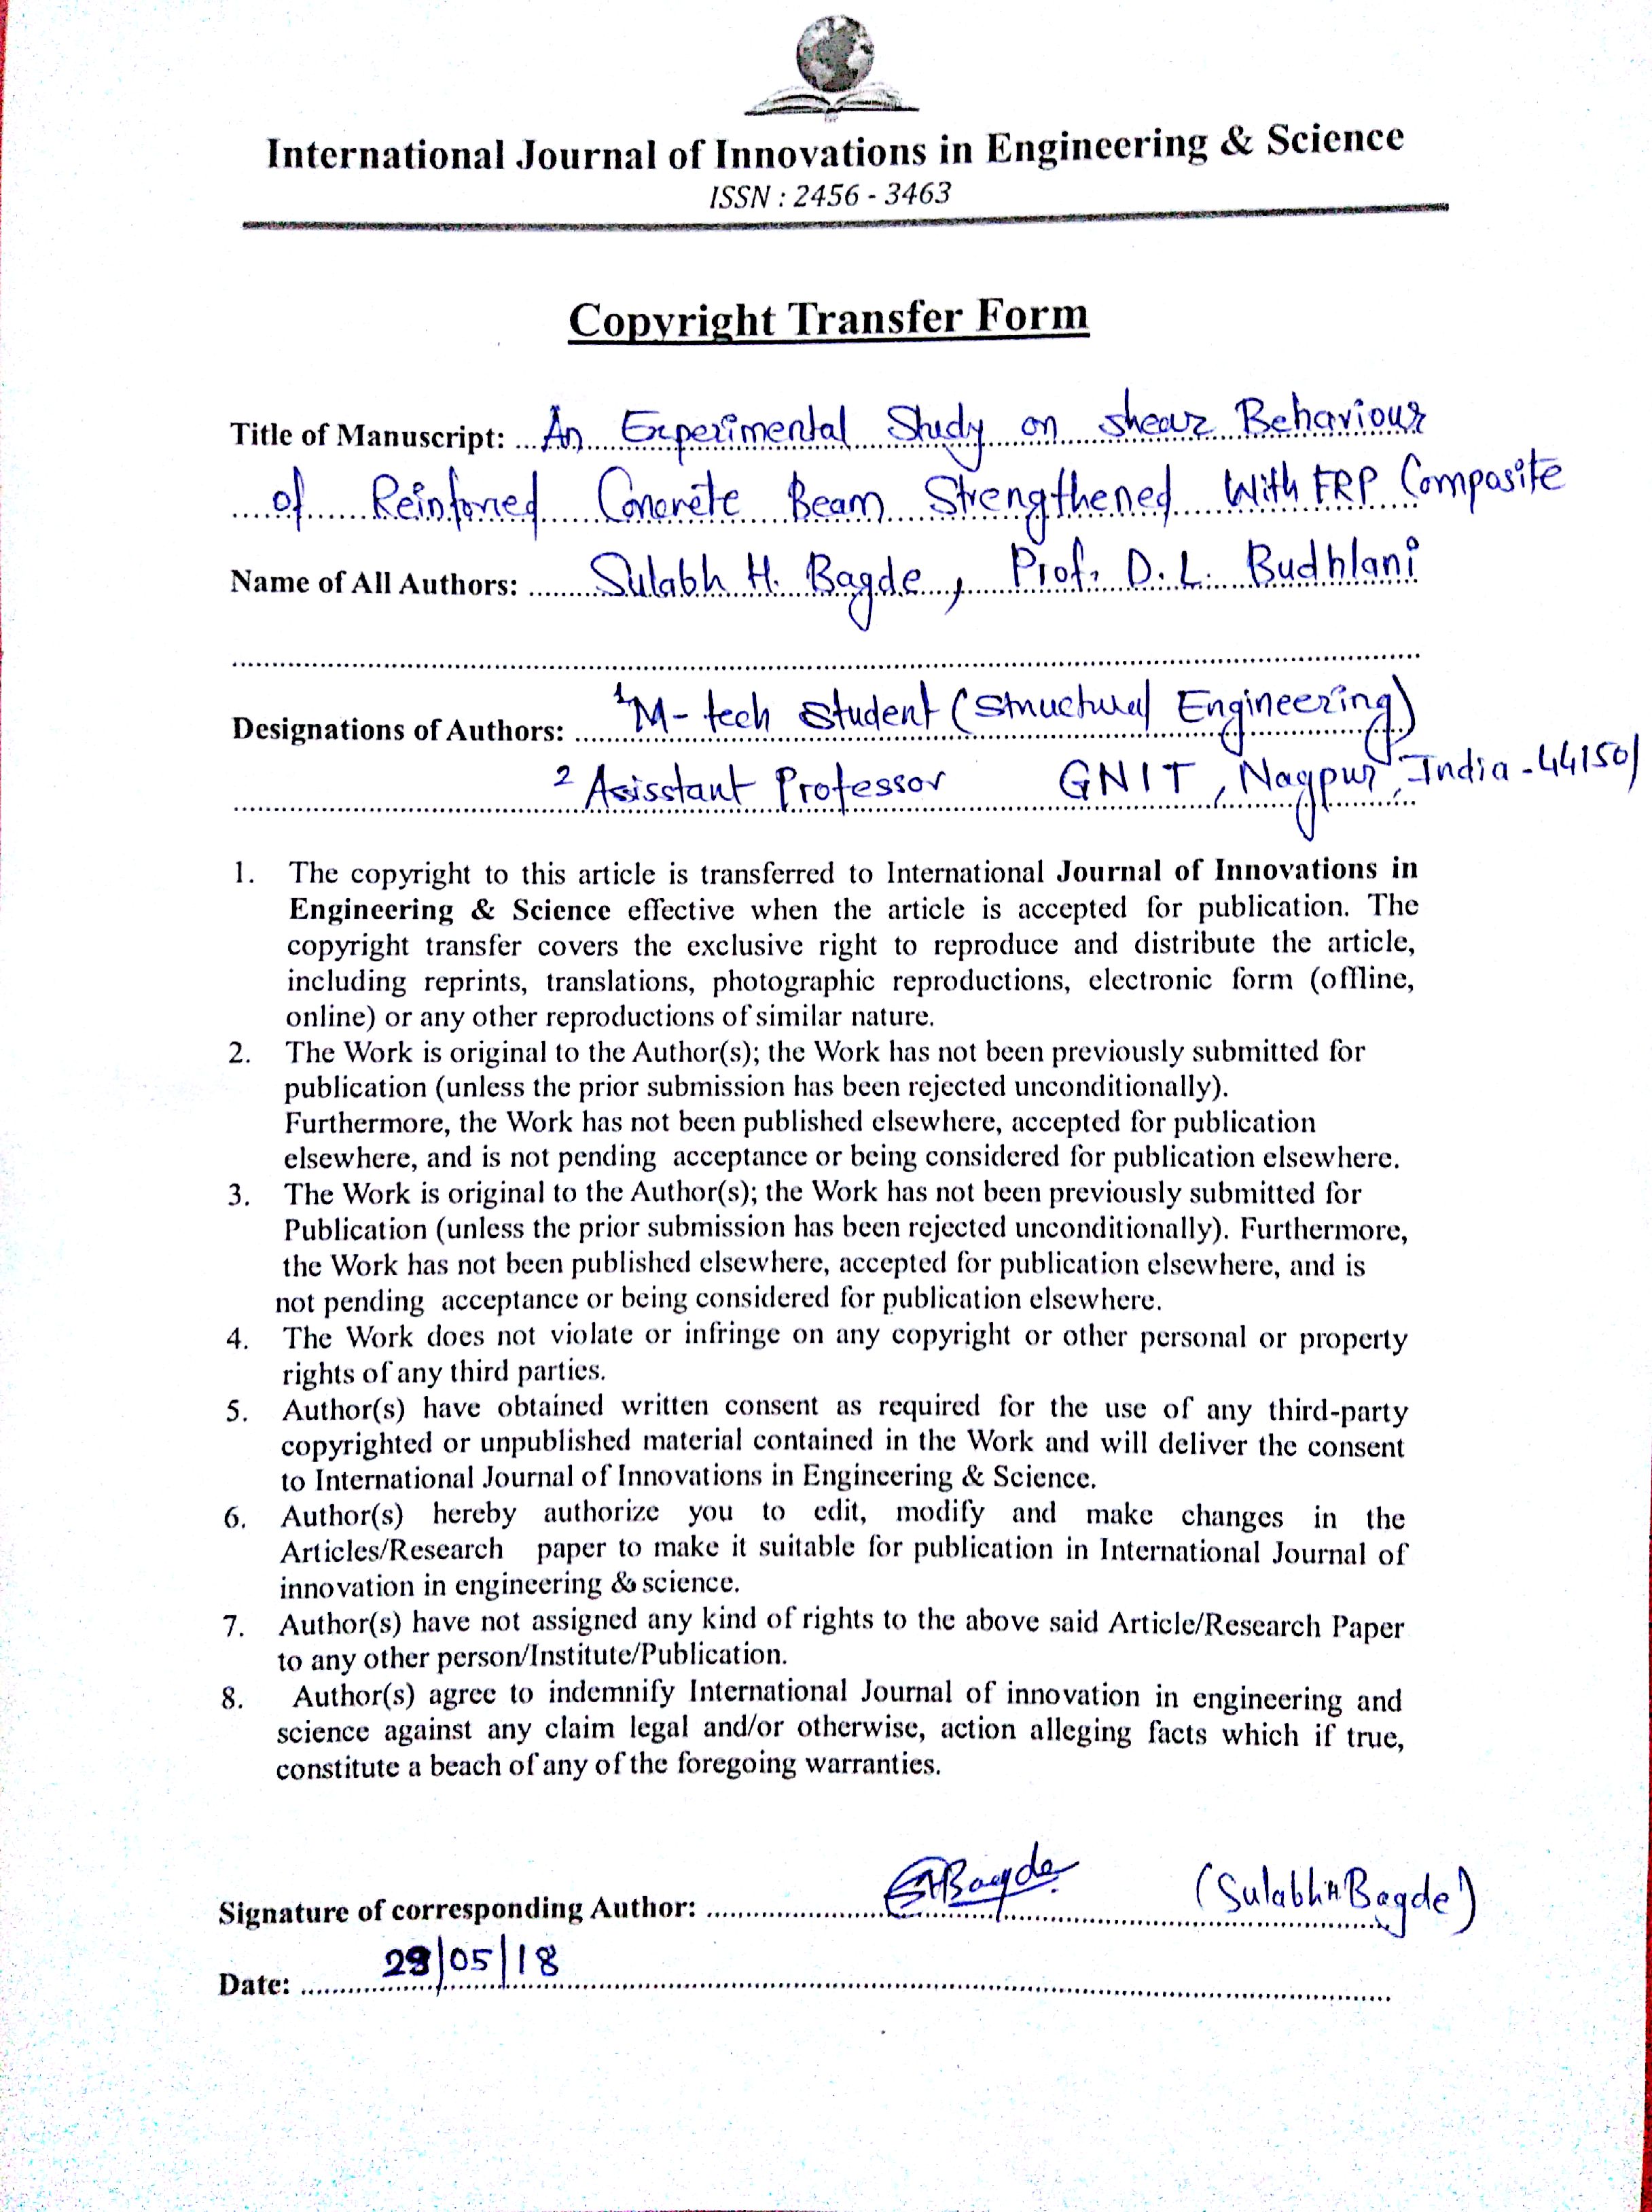 International Journal of Innovations in Engineering & Science
ISSN : 2456 - 3463
Copyright Transfer Form
Title of Manuscript: An Experimental Study on shear Behaviour
of Reinforced Concrete Beam Strengthened With FRP Composite
Name of All Authors: Sulabh H. Bagde, Prof. D. L. Budhlani
Designations of Authors: 1 M-tech student (Structural Engineering)
2 Asisstant Professor GNIT, Nagpur, India - 441501
1. The copyright to this article is transferred to International Journal of Innovations in
Engineering & Science effective when the article is accepted for publication. The
copyright transfer covers the exclusive right to reproduce and distribute the article,
including reprints, translations, photographic reproductions, electronic form (offline,
online) or any other reproductions of similar nature.
2. The Work is original to the Author(s); the Work has not been previously submitted for
publication (unless the prior submission has been rejected unconditionally).
Furthermore, the Work has not been published elsewhere, accepted for publication
elsewhere, and is not pending acceptance or being considered for publication elsewhere.
3. The Work is original to the Author(s); the Work has not been previously submitted for
Publication (unless the prior submission has been rejected unconditionally). Furthermore,
the Work has not been published elsewhere, accepted for publication elsewhere, and is
not pending acceptance or being considered for publication elsewhere.
4. The Work does not violate or infringe on any copyright or other personal or property
rights of any third parties.
5. Author(s) have obtained written consent as required for the use of any third-party
copyrighted or unpublished material contained in the Work and will deliver the consent
to International Journal of Innovations in Engineering & Science.
6. Author(s) hereby authorize you to edit, modify and make changes in the
Articles/Research paper to make it suitable for publication in International Journal of
innovation in engineering & science.
7. Author(s) have not assigned any kind of rights to the above said Article/Research Paper
to any other person/Institute/Publication.
8. Author(s) agree to indemnify International Journal of innovation in engineering and
science against any claim legal and/or otherwise, action alleging facts which if true,
constitute a beach of any of the foregoing warranties.
Signature of corresponding Author: SHBagde (Sulabh H. Bagde)
Date: /05/18